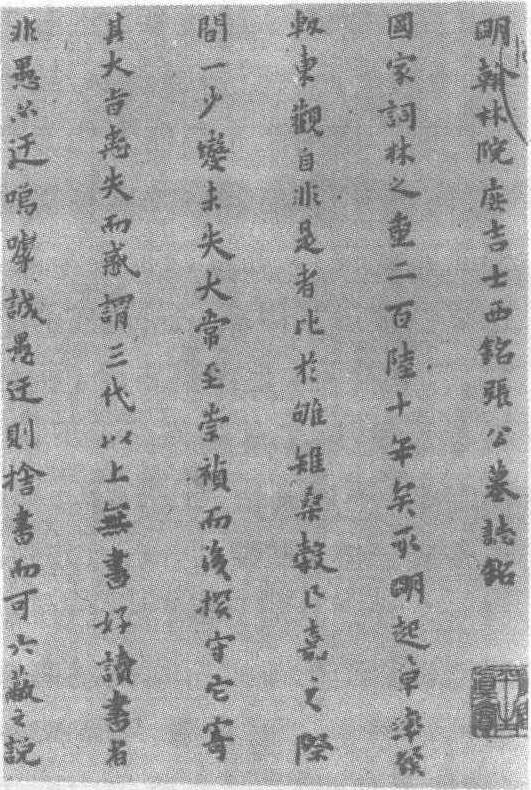 明翰林院庶吉士西銘張公墓誌銘
國家詞林之重二百陸十年矣永明起阜
東觀自非是者比於雊雉桑穀已嘉之際
間一少變未失大常至崇禎而後操守它寄
其大旨耑失而惑謂三代以上無書好讀書者
非愚必迂嗚嘑誠愚迂則捨書而可六蔽之說